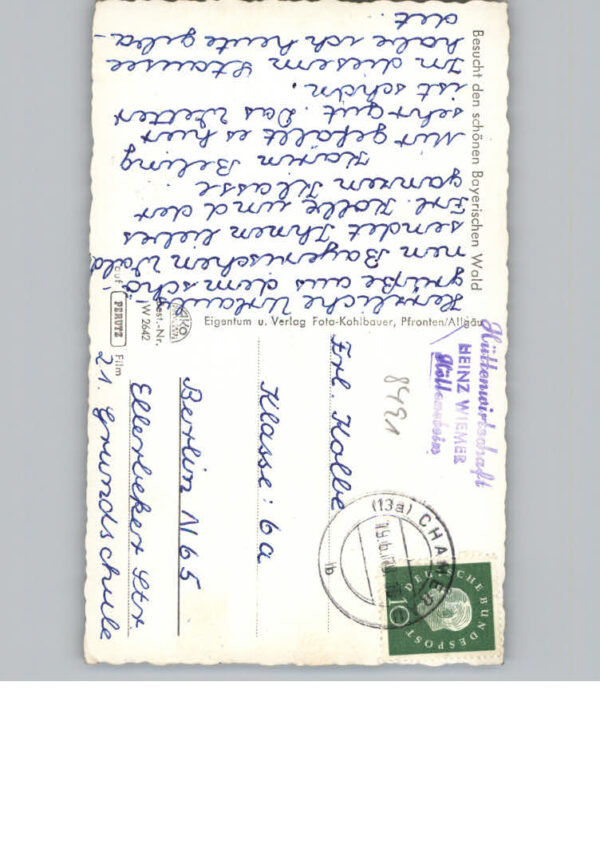 Herzliche Urlaubs
grüße aus dem schö-
nen Bayerischen Wald
sendet Ihnen liebes
Frl. Kolbe und der
ganzen Klasse
Karin Beling
Mir gefällt es hier
sehr gut. Das Wetter
ist schön.
In diesem Stausee
habe ich heute geba-
det.
Besucht den schönen Bayerischen Wald
Eigentum u. Verlag Foto-Kohlbauer, Pfronten/Allgäu
Best.-Nr.
W 2642
auf
PERUTZ
Film
Hüttenwirtschaft
HEINZ WIEMER
8491
(13a) CHAM
b
DEUTSCHE BUNDESPOST
10
Frl. Kolbe
Klasse: 6a
Berlin N 65
Ellerbeker Str
21. Grundschule